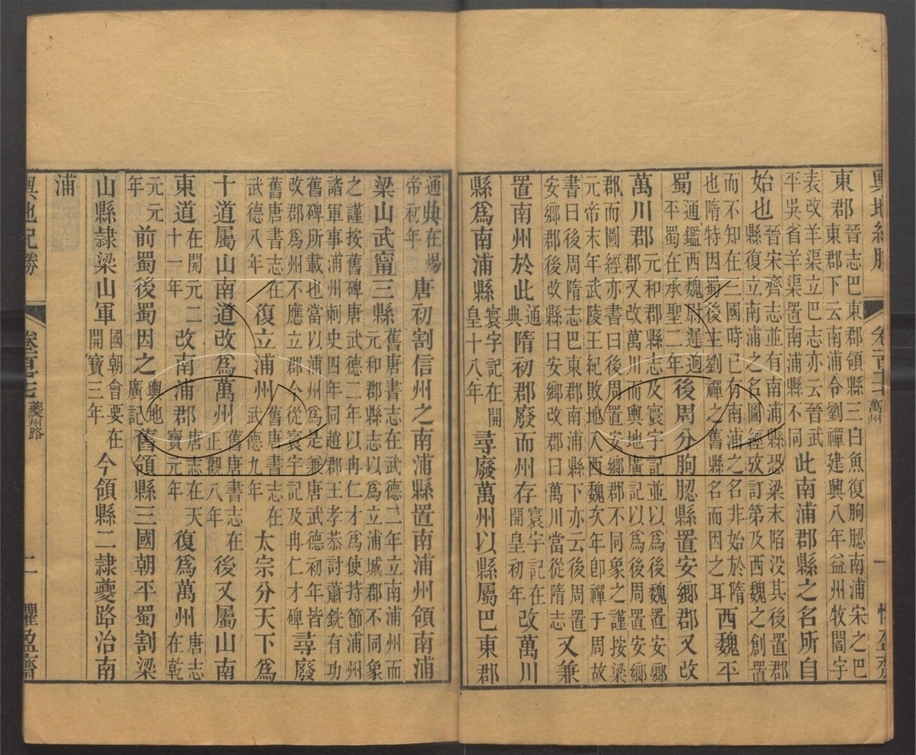 東郡晉志巴東郡領縣三白魚復朐䏰南浦宋之巴東郡下云南浦令劉禪建興八年益州牧閻宇
表改羊渠立巴志亦云晉武平吳省羊渠置南浦縣不同此南浦郡縣之名所自
始也晉宋齊志並有南浦縣恐梁末陷没其後置郡縣復立南浦之名圖經攷訂第及西魏之創置
而不知在三國時已有南浦之名非始於隋也隋特因蜀後主劉禪之舊縣名而因之耳西魏平
蜀通鑑西魏尉遲迥平蜀在承聖二年後周分朐䏰縣置安鄉郡又改
萬川郡元和郡縣志及寰宇記並以為後魏置安鄉郡又改萬川郡而輿地廣記以為後周置安鄉
郡而圖經亦書曰後周置安鄉郡不同象之謹按梁元帝末年武陵王紀敗地入西魏次年卽禪于周故
書曰後周隋志巴東郡南浦縣下亦云後周置安鄉郡後改縣曰安鄉改郡曰萬川當從隋志又兼
置南州於此通典隋初郡廢而州存寰宇記在開皇初年改萬川
縣爲南浦縣寰宇記在開皇十八年尋廢萬州以縣屬巴東郡
輿地紀勝 卷一百七十七萬州 一 懼盈齋
通典在煬帝初年唐初割信州之南浦縣置南浦州領南浦
梁山武甯三縣舊唐書志在武德二年立南浦州而元和郡縣志以爲立浦城郡不同象
之謹按舊碑唐武德二年以冉仁才爲使持節浦州諸軍事浦州刺史四年同趙郡王孝恭討蕭銑有功
舊碑所載也當以浦州爲是兼唐武德初年皆改郡爲州不應立郡今從寰宇記及冉仁才碑尋廢
舊唐書志在武德八年復立浦州舊唐書志在武德九年太宗分天下爲
十道屬山南道改爲萬州舊唐書志在正觀八年後又屬山南
東道在開元二十一年改南浦郡唐志在天寶元年復爲萬州唐志在乾
元元年前蜀後蜀因之輿地廣記舊領縣三國朝平蜀割梁
山縣隷梁山軍國朝會要在開寶三年今領縣二隷夔路治南
浦
輿地紀勝 卷一百七十七夔州路 二 懼盈齋